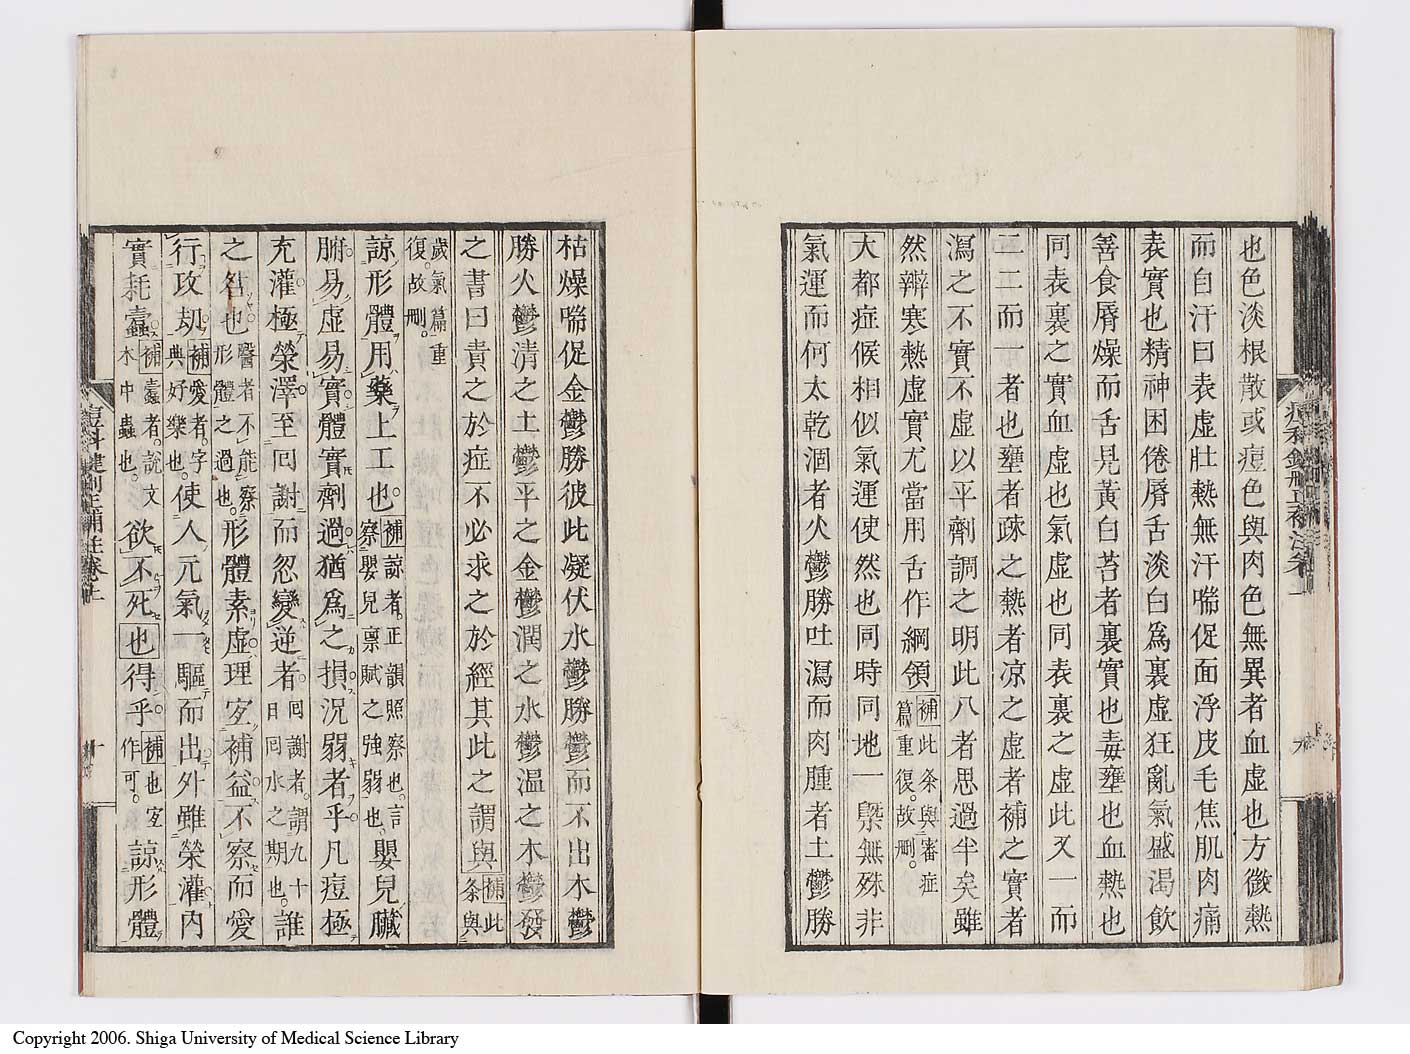 也色淡根散或痘色與肉色無異者血虛也方微熱
而自汗曰表虛壯熱無汗喘促面浮皮毛焦肌肉痛
表實也精神困倦唇舌淡白爲裏虛狂亂氣盛渴飲
善食唇燥而舌見黃白苔者裏實也毒壅也血熱也
同表裏之實血虛也氣虛也同表裏之虛此又一而
二二而一者也壅者疎之熱者凉之虛者補之實者
瀉之不實不虛以平劑調之明此八者思過半矣雖
然辨寒熱虛實尤當用舌作綱領補此条與審症
篇重復。故刪。
大都症候相似氣運使然也同時同地一槩無殊非
氣運而何太乾涸者火鬱勝吐瀉而肉腫者土鬱勝
枯燥喘促金鬱勝彼此凝伏水鬱勝鬱而不出木鬱
勝火鬱清之土鬱平之金鬱潤之水鬱温之木鬱發
之書曰責之於症不必求之於經其此之謂與補此
条與
歲氣篇重
復。故刪。
諒形體用藥上工也補諒者。正韻照察也。言
察嬰兒禀賦之強弱也。嬰兒臟
腑易虛易實體實劑過猶爲之損況弱者乎凡痘極
充灌極榮澤至囘謝而忽變逆者囘謝者。謂九十
日囘水之期也。誰
之咎也醫者不能察
形體之過也。形體素虛理宜補益不察而愛
行攻刧補愛者。字
典好樂也。使人元氣一驅而出外雖榮灌内
實耗蠧補蠧者。說文
木中蟲也。欲不死也得乎補也宜
作可。諒形體